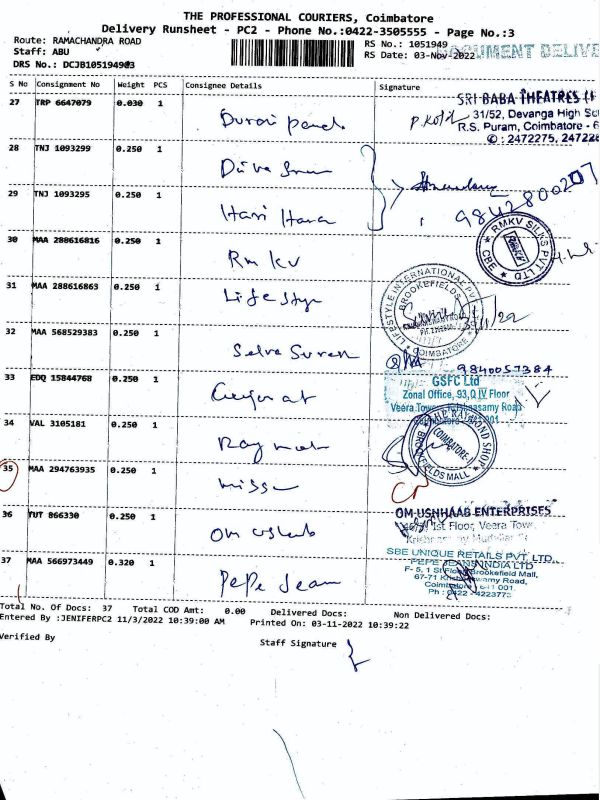 THE PROFESSIONAL COURIERS, Coimbatore
Delivery Runsheet - PC2 - Phone No.:0422-3505555 - Page No.:3
Route: RAMACHANDRA ROAD
RS No.: 1051949
DOCUMENT DELIVE
Staff: ABU
RS Date: 03-Nov-2022
DRS No.: DCJB105194903
S No Consignment No Weight PCS Consignee Details Signature
27 TRP 6647079 0.030 1
SRI BABA THEATRES
31/52, Devanga High Sc
R.S. Puram, Coimbatore - 6
: 2472275, 24722
28 TNJ 1093299 0.250 1
29 TNJ 1093295 0.250 1 Hari Hara
9842800207
30 MAA 288616816 0.250 1 Rmkv
RMKV SILKS PVT LTD
RMKV
CBE
31 MAA 288616863 0.250 1 Life Style
LIFESTYLE INTERNATIONAL PVT
BROOKEFIELDS
COIMBATORE
3/11/22
32 MAA 568529383 0.250 1 Selva Suren
9840057384
33 EDQ 15844768 0.250 1 Gujarat
GSFC Ltd
Zonal Office, 93,Q IV Floor
34 VAL 3105181 0.250 1
THE RAYMOND SHOP
COIMBATORE
BROOKFIELDS MALL
35 MAA 294763935 0.250 1
36 TUT 866330 0.250 1
OM USNHAAB ENTERPRISES
1st Floor, Veera Tow
37 MAA 566973449 0.320 1 Pepe Jean
SBE UNIQUE RETAILS PVT. LTD.,
PEPE JEANS INDIA LTD
F- 5, 1 St Floor, Brookefield Mall,
Total No. Of Docs: 37 Total COD Amt: 0.00 Delivered Docs: Non Delivered Docs:
Entered By :JENIFERPC2 11/3/2022 10:39:00 AM Printed On: 03-11-2022 10:39:22
Verified By
Staff Signature